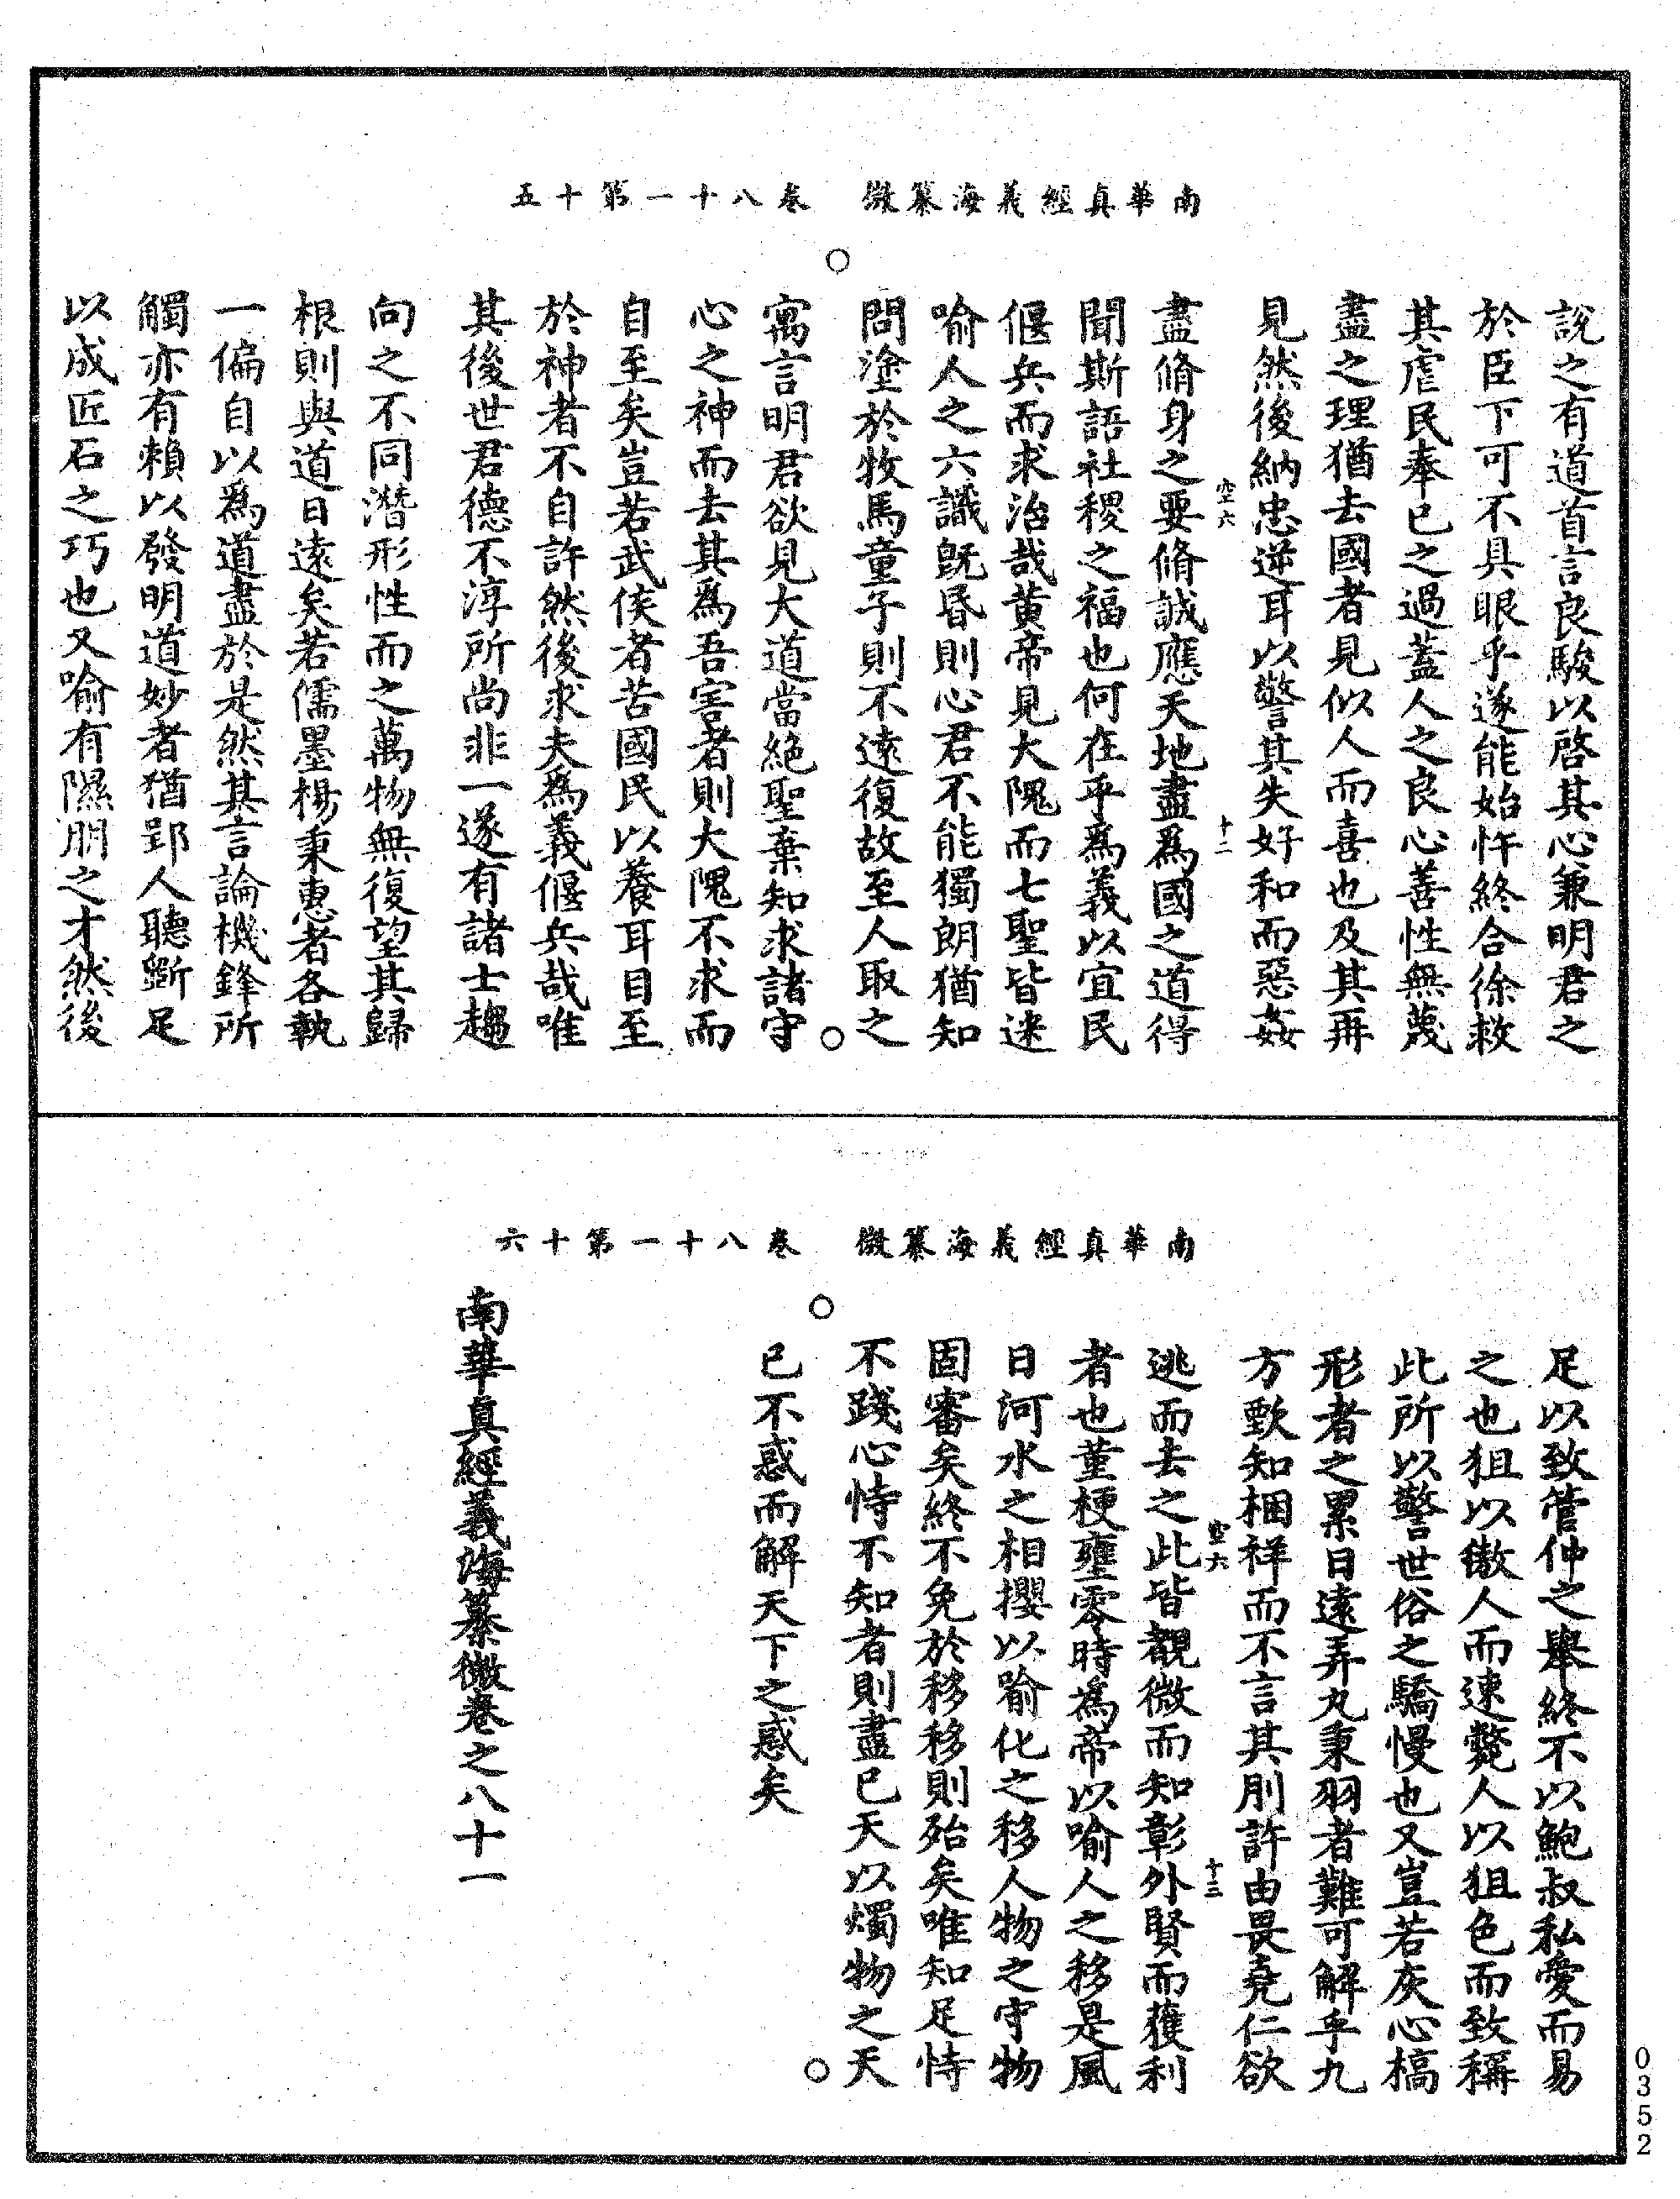 南華真經義海纂微　卷八十一第十五
說之有道首言良駿以啓其心兼明君之
於臣下可不具眼乎遂能始忤終合徐救
其虐民奉己之過蓋人之良心善性無蔑
盡之理猶去國者見似人而喜也及其再
見然後納忠逆耳以警其失好和而惡姦
空六
十二
盡脩身之要脩誠應天地盡為國之道得
聞斯語社稷之福也何在乎為義以宜民
偃兵而求治哉黃帝見大隗而七聖皆迷
喻人之六識既昏則心君不能獨朗猶知
問塗於牧馬童子則不遠復故至人取之
寓言明君欲見大道當絕聖棄知求諸守
心之神而去其為吾害者則大隗不求而
自至矣豈若武侯者苦國民以養耳目至
於神者不自許然後求夫為義偃兵哉唯
其後世君德不淳所尚非一遂有諸士趨
向之不同潛形性而之萬物無復望其歸
根則與道日遠矣若儒墨楊秉惠者各執
一偏自以為道盡於是然其言論機鋒所
觸亦有賴以發明道妙者猶郢人聽斲足
以成匠石之巧也又喻有隰朋之才然後
南華真經義海纂微　卷八十一第十六
足以致管仲之舉終不以鮑叔私愛而易
之也狙以傲人而速斃人以狙色而致稱
此所以警世俗之驕慢也又豈若灰心槁
形者之累日遠弄丸秉羽者難可解乎九
方歅知梱祥而不言其刖許由畏堯仁欲
空六
十三
逃而去之此皆覩微而知彰外賢而獲利
者也菫梗壅零時為帝以喻人之移是風
日河水之相攖以喻化之移人物之守物
固審矣終不免於移移則殆矣唯知足恃
不踐心恃不知者則盡已天以燭物之天
已不惑而解天下之惑矣
南華真經義海纂微卷之八十一
0352